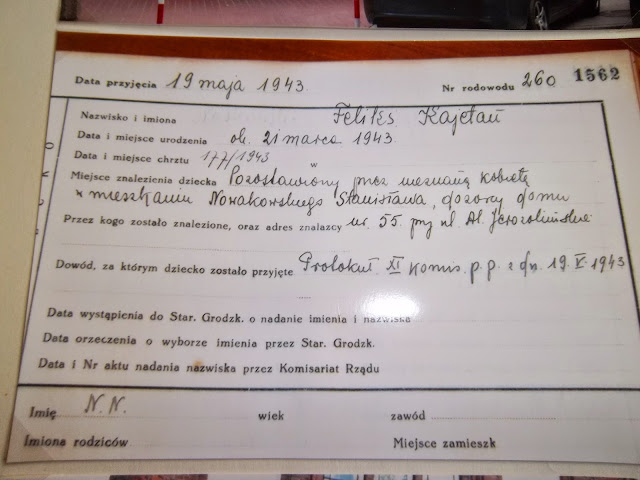 Data przyjęcia 19 maja 1943. Nr rodowodu 260 1562
Nazwisko i imiona Feliks Kajetan
Data i miejsce urodzenia ok. 21 marca 1943
Data i miejsce chrztu 177/1943 w
Miejsce znalezienia dziecka Pozostawiony przez nieznaną kobietę
w mieszkaniu Nowakowskiego Stanisława, dozorcy domu
Przez kogo zostało znalezione, oraz adres znalazcy nr. 55 przy ul. Al. Jerozolimskie
Dowód, za którym dziecko zostało przyjęte Protokuł XI Komis. p.p. z dn. 19.V.1943
Data wystąpienia do Star. Grodzk. o nadanie imienia i nazwiska
Data orzeczenia o wyborze imienia przez Star. Grodzk.
Data i Nr aktu nadania nazwiska przez Komisariat Rządu
Imię N.N. wiek zawód
Imiona rodziców Miejsce zamieszk